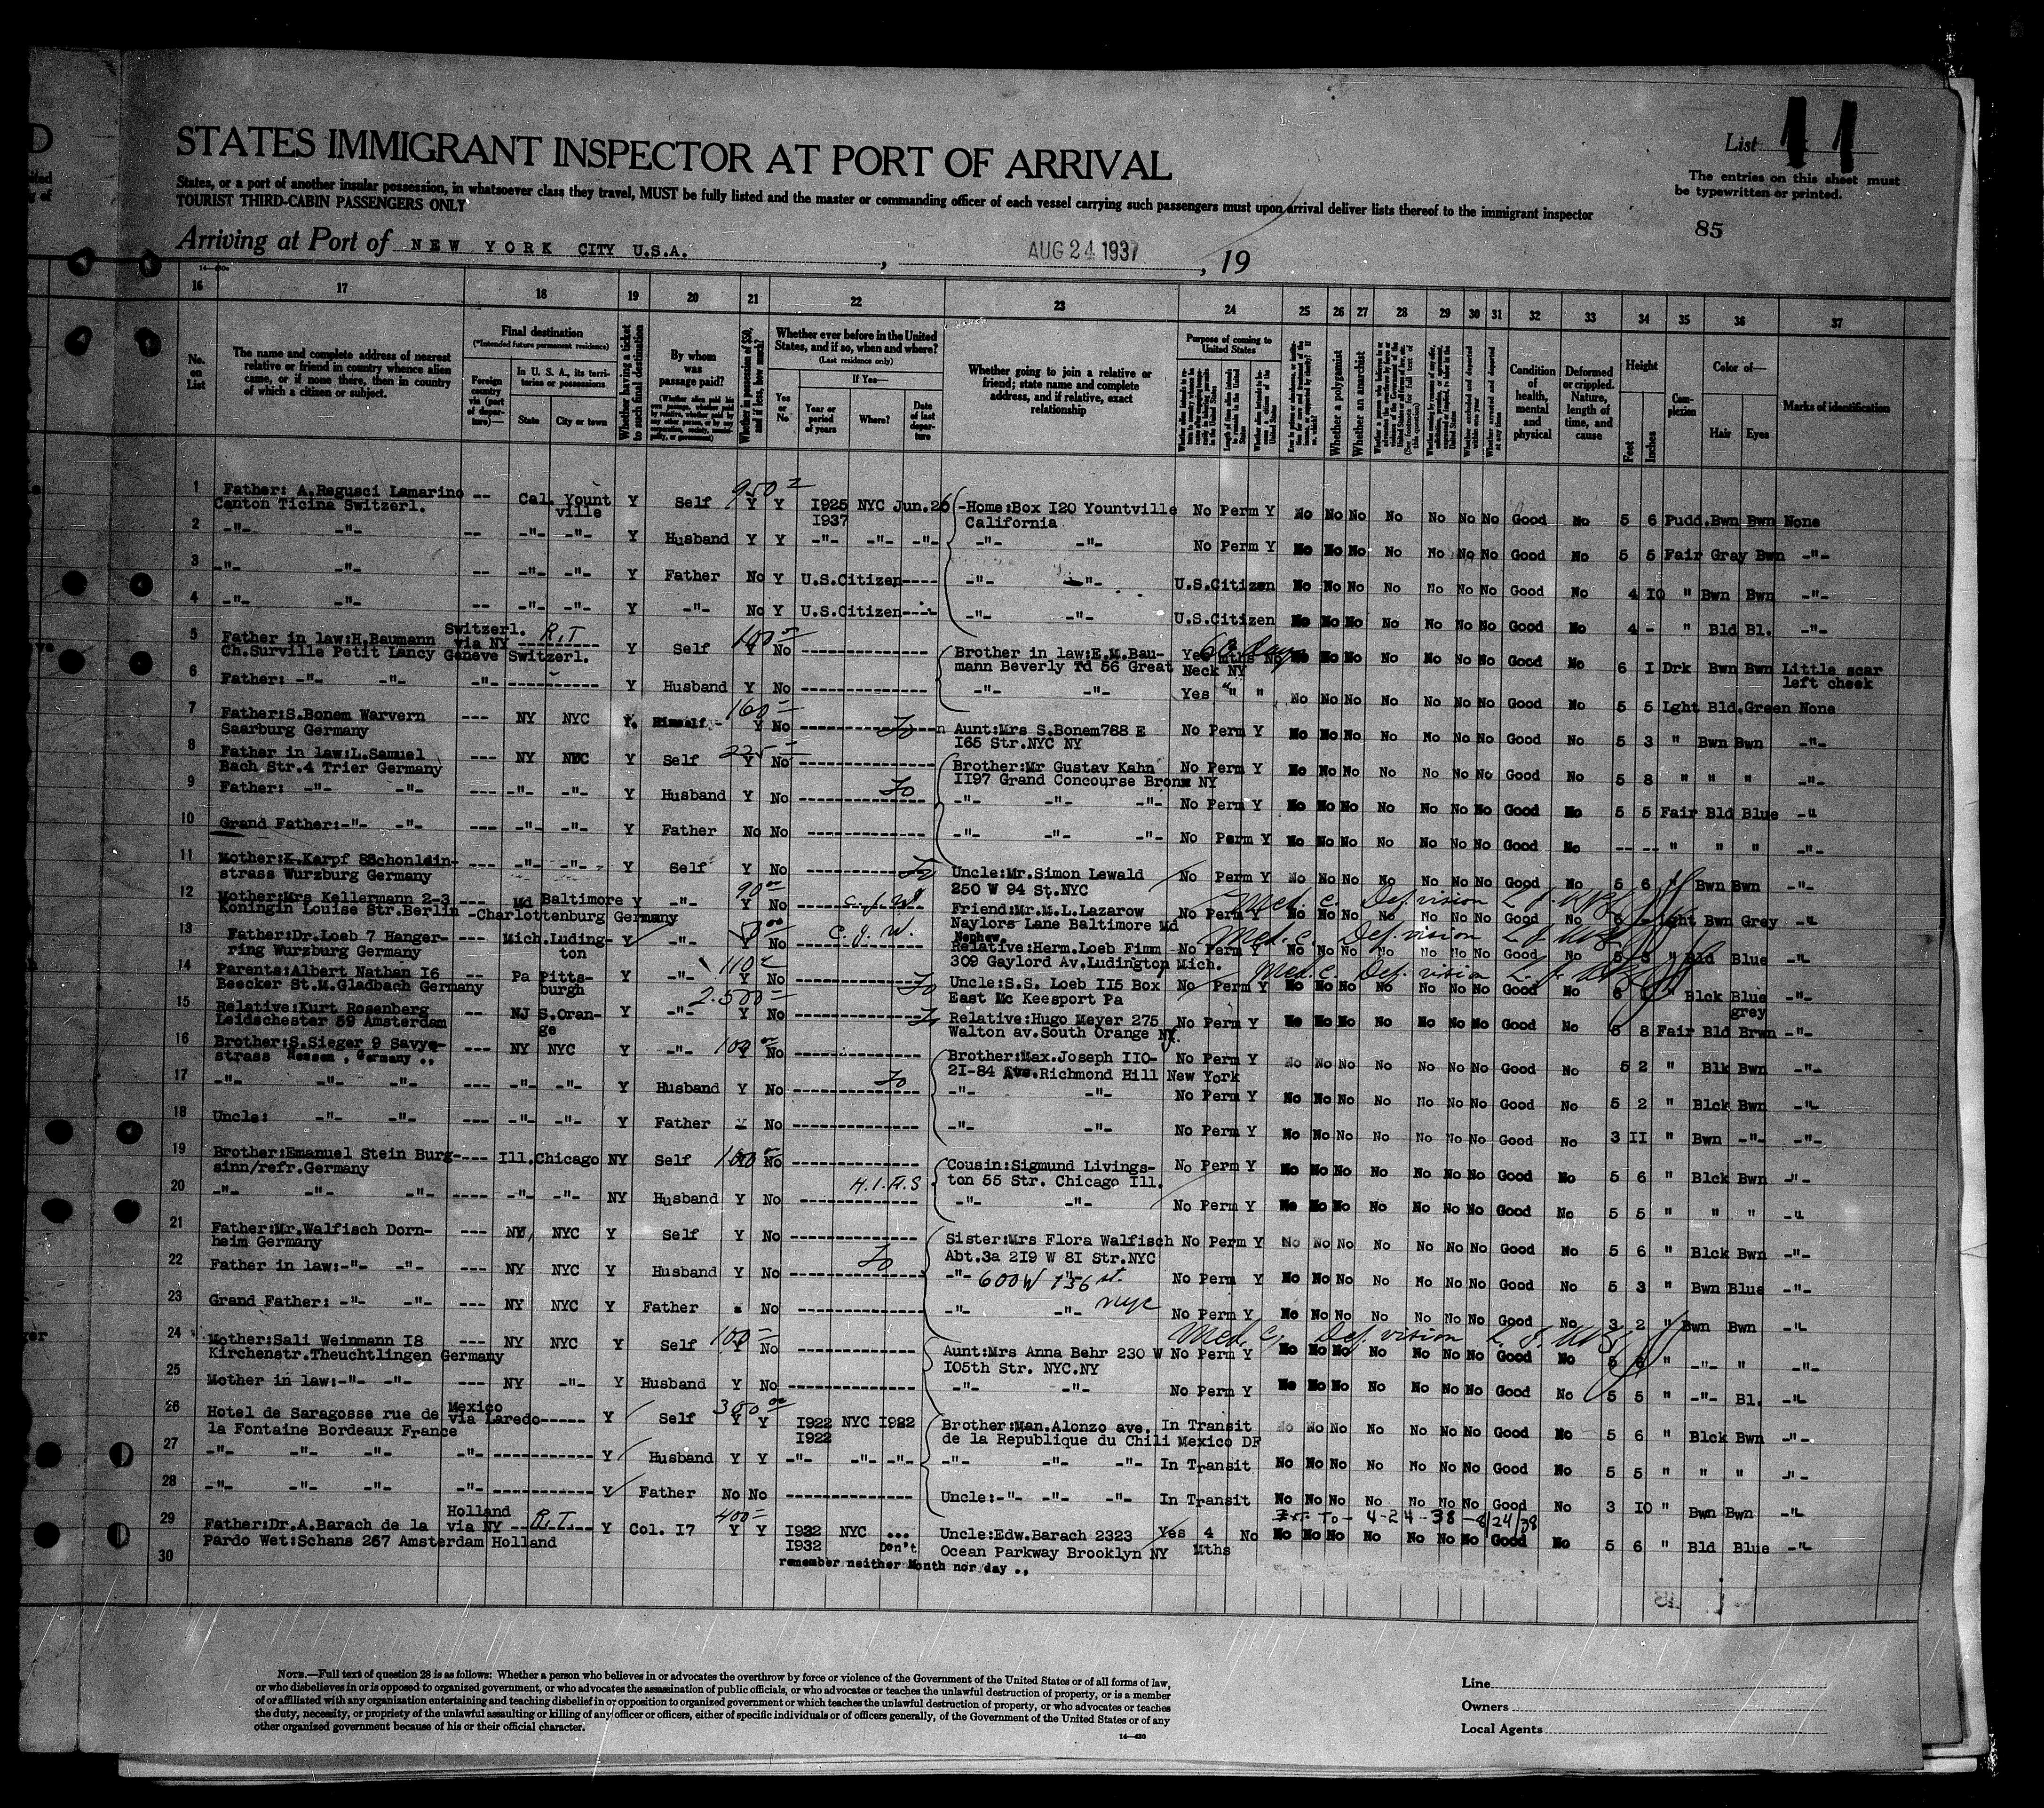 List 11
STATES IMMIGRANT INSPECTOR AT PORT OF ARRIVAL
The entries on this sheet must
be typewritten or printed.
States, or a port of another insular possession, in whatsoever class they travel, MUST be fully listed and the master or commanding officer of each vessel carrying such passengers must upon arrival deliver lists thereof to the immigrant inspector
TOURIST THIRD-CABIN PASSENGERS ONLY
85
Arriving at Port of NEW YORK CITY U.S.A. , AUG 24 1937 , 19
16 17 18 19 20 21 22 23 24 25 26 27 28 29 30 31 32 33 34 35 36 37
No. on List
The name and complete address of nearest relative or friend in country whence alien came, or if none there, then in country of which a citizen or subject.
Final destination
(*Intended future permanent residence)
Foreign country via (port of departure)—
In U. S. A., its territories or possessions
State City or town
Whether having a ticket to such final destination
By whom was passage paid?
Whether in possession of $50, and if less, how much?
Whether ever before in the United States, and if so, when and where?
(Last residence only)
Yes or No
If Yes—
Year or period of years Where? Date of last departure
Whether going to join a relative or friend; state name and complete address, and if relative, exact relationship
Purpose of coming to United States
Whether a polygamist
Whether an anarchist
Condition of health, mental and physical
Deformed or crippled. Nature, length of time, and cause
Height
Feet Inches
Complexion
Color of—
Hair Eyes
Marks of identification
1 Father: A.Regusci Lamarino -- Cal. Yount Y Self 950 Y Y 1925 NYC Jun.26 -Home:Box I20 Yountville No Perm Y No No No No No No No Good No 5 6 Pudd.Bwn Bwn None
Canton Ticina Switzerl. ville I937 California
2 -"- -"- -- -"- -"- Y Husband Y Y -"- -"- -"- -"- -"- No Perm Y No No No No No No No Good No 5 5 Fair Gray Bwn -"-
3 -"- -"- -- -"- -"- Y Father No Y U.S.Citizen---- -"- -"- U.S.Citizen No No No No No No No Good No 4 I0 " Bwn Bwn -"-
4 -"- -"- -- -"- -"- Y -"- No Y U.S.Citizen---- -"- -"- U.S.Citizen No No No No No No No Good No 4 - " Bld Bl. -"-
5 Father in law:H.Baumann Switzerl. via NY R.T Y Self 100 Y No Brother in law:E.M.Bau- Yes mths No No No No No No No No Good No 6 I Drk Bwn Bwn Little scar
Ch.Surville Petit Lancy Geneve Switzerl. mann Beverly Td 56 Great Neck NY left cheek
6 Father: -"- -"- -"- Y Husband Y No -"- -"- Yes " " No No No No No No No Good No 5 5 Lght Bld.Green None
7 Father:S.Bonem Warvern --- NY NYC Y. Himself - 160 Y No Aunt:Mrs S.Bonem788 E No Perm Y No No No No No No No Good No 5 3 " Bwn Bwn -"-
Saarburg Germany I65 Str.NYC NY
8 Father in law:L.Samuel --- NY NYC Y Self 225 Y No Brother:Mr Gustav Kahn No Perm Y No No No No No No No Good No 5 8 " " " -"-
Bach Str.4 Trier Germany II97 Grand Concourse Bronx NY
9 Father: -"- -"- --- -"- -"- Y Husband Y No -"- -"- -"- No Perm Y No No No No No No No Good No 5 5 Fair Bld Blue -"-
10 Grand Father:-"- -"- --- -"- -"- Y Father No No -"- -"- -"- No Perm Y No No No No No No No Good No -- -- " " " -"-
11 Mother:K.Karpf 8Schonldin- --- -"- -"- Y Self Y No Uncle:Mr.Simon Lewald No Perm Y No No No No No No No Good No 5 6 Bwn Bwn -"-
strass Wurzburg Germany 250 W 94 St.NYC
Med. C. Def. vision
12 Mother:Mrs Kellermann 2-3 --- Md Baltimore Y -"- 90 Y No Friend:Mr.M.L.Lazarow No Perm Y No No No No No No No Good No Lght Bwn Grey -"-
Koningin Louise Str.Berlin -Charlottenburg Germany Naylors Lane Baltimore Md
Med. C. Def. vision
13 Father:Dr.Loeb 7 Hanger- --- Mich.Luding- Y -"- 50 Y No Nephew. Relative:Herm.Loeb Fimm No Perm Y No No No No No No No Good No 5 " Bld Blue -"-
ring Wurzburg Germany ton 309 Gaylord Av.Ludington Mich.
Med. C. Def. vision
14 Parents:Albert Nathan I6 -- Pa Pitts- Y -"- 110 Y No Uncle:S.S. Loeb II5 Box No Perm Y No No No No No No No Good No " Blck Blue -"-
Beecker St.M.Gladbach Germany burgh East Mc Keesport Pa grey
15 Relative:Kurt Rosenberg -- NJ S.Oran- Y -"- 2.500 Y No Relative:Hugo Meyer 275 No Perm Y No No No No No No No Good No 5 8 Fair Bld Brwn -"-
Leidschester 59 Amsterdam ge Walton av.South Orange
16 Brother:S.Sieger 9 Savye- --- NY NYC Y -"- 100 Y No Brother:Max.Joseph II0- No Perm Y No No No No No No No Good No 5 2 " Blk Bwn -"-
strass Hessen, Germany .. 2I-84 Ave.Richmond Hill New York
17 -"- -"- -"- --- -"- -"- Y Husband Y No -"- -"- No Perm Y No No No No No No No Good No 5 2 " Blck Bwn -"-
18 Uncle: -"- -"- --- -"- -"- Y Father No -"- -"- No Perm Y No No No No No No No Good No 3 II " Bwn -"- -"-
19 Brother:Emanuel Stein Burg---- Ill.Chicago NY Self 100 No Cousin:Sigmund Livings- No Perm Y No No No No No No No Good No 5 6 " Blck Bwn -"-
sinn/refr.Germany ton 55 Str. Chicago Ill.
20 -"- -"- -"- ---- -"- -"- NY Husband Y No H.I.A.S -"- -"- No Perm Y No No No No No No No Good No 5 5 " " " -"-
21 Father:Mr.Walfisch Dorn- --- NY NYC Y Self Y No Sister:Mrs Flora Walfisch No Perm Y No No No No No No No Good No 5 6 " Blck Bwn -"-
heim Germany Abt.3a 2I9 W 8I Str.NYC
22 Father in law:-"- -"- --- NY NYC Y Husband Y No -"- 600 W 136 st. No Perm Y No No No No No No No Good No 5 3 " Bwn Blue -"-
nyc
23 Grand Father: -"- -"- --- NY NYC Y Father No -"- -"- No Perm Y No No No No No No No Good No 3 2 " Bwn Bwn -"-
Med. C. Def. vision
24 Mother:Sali Weinmann I8 --- NY NYC Y Self 100 Y No Aunt:Mrs Anna Behr 230 W No Perm Y No No No No No No No Good No 5 6 " -"- " -"-
Kirchenstr.Theuchtlingen Germany I05th Str. NYC.NY
25 Mother in law:-"- -"- --- NY -"- Y Husband Y No -"- -"- No Perm Y No No No No No No No Good No 5 5 " -"- Bl. -"-
26 Hotel de Saragosse rue de Mexico via Laredo----- Y Self 300 Y Y I922 NYC I922 Brother:Man.Alonzo ave. In Transit No No No No No No No Good No 5 6 " Blck Bwn -"-
la Fontaine Bordeaux France I922 de la Republique du Chili Mexico DF
27 -"- -"- -"- -"- Y Husband Y Y -"- -"- -"- -"- -"- -"- In Transit No No No No No No No Good No 5 5 " " " -"-
28 -"- -"- -"- -"- Y Father No No Uncle:-"- -"- -"- In Transit No No No No No No No Good No 3 I0 " Bwn Bwn -"-
Ext. To - 4-24-38 - 8/24/38
29 Father:Dr.A.Barach de la Holland via NY R.T. Y Col. I7 400 Y Y I932 NYC ... Uncle:Edw.Barach 2323 Yes 4 No No No No No No No No Good No 5 6 " Bld Blue -"-
Pardo Wet:Schans 267 Amsterdam Holland I932 Don't Ocean Parkway Brooklyn NY Mths
30 remember neither Month nor day ..
NOTE.—Full text of question 28 is as follows: Whether a person who believes in or advocates the overthrow by force or violence of the Government of the United States or of all forms of law,
or who disbelieves in or is opposed to organized government, or who advocates the assassination of public officials, or who advocates or teaches the unlawful destruction of property, or is a member
of or affiliated with any organization entertaining and teaching disbelief in or opposition to organized government or which teaches the unlawful destruction of property, or who advocates or teaches
the duty, necessity, or propriety of the unlawful assaulting or killing of any officer or officers, either of specific individuals or of officers generally, of the Government of the United States or of any
other organized government because of his or their official character.
14—430
Line
Owners
Local Agents